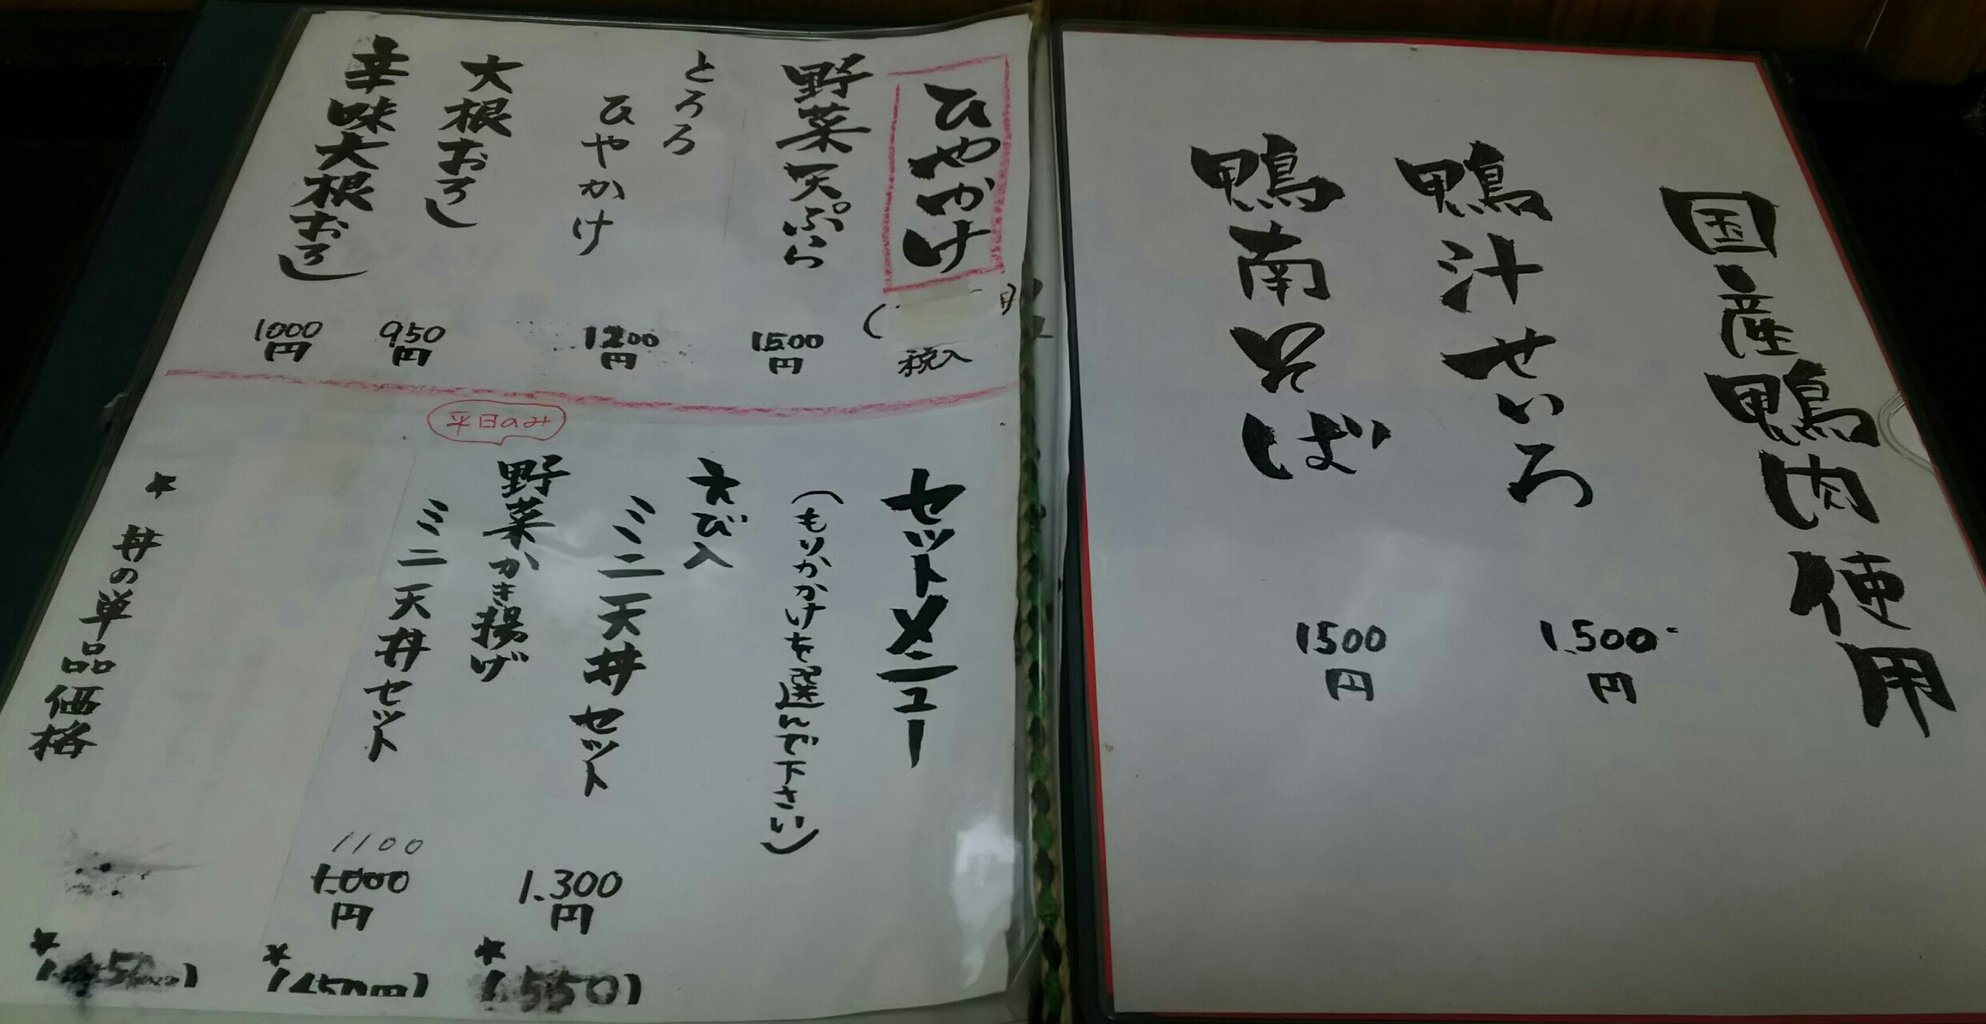 国産鴨肉使用
鴨汁せいろ
1.500円
鴨南そば
1500円
ひやかけ
税入
野菜天ぷら
1500円
とろろ
ひやかけ
1200円
大根おろし
950円
辛味大根おろし
1000円
セットメニュー
(もりかかけを選んで下さい)
えび入
ミニ天丼セット
1.300円
*(550)
平日のみ
野菜かき揚げ
ミニ天丼セット
1100
1.000円
*(450円)
* 丼の単品価格